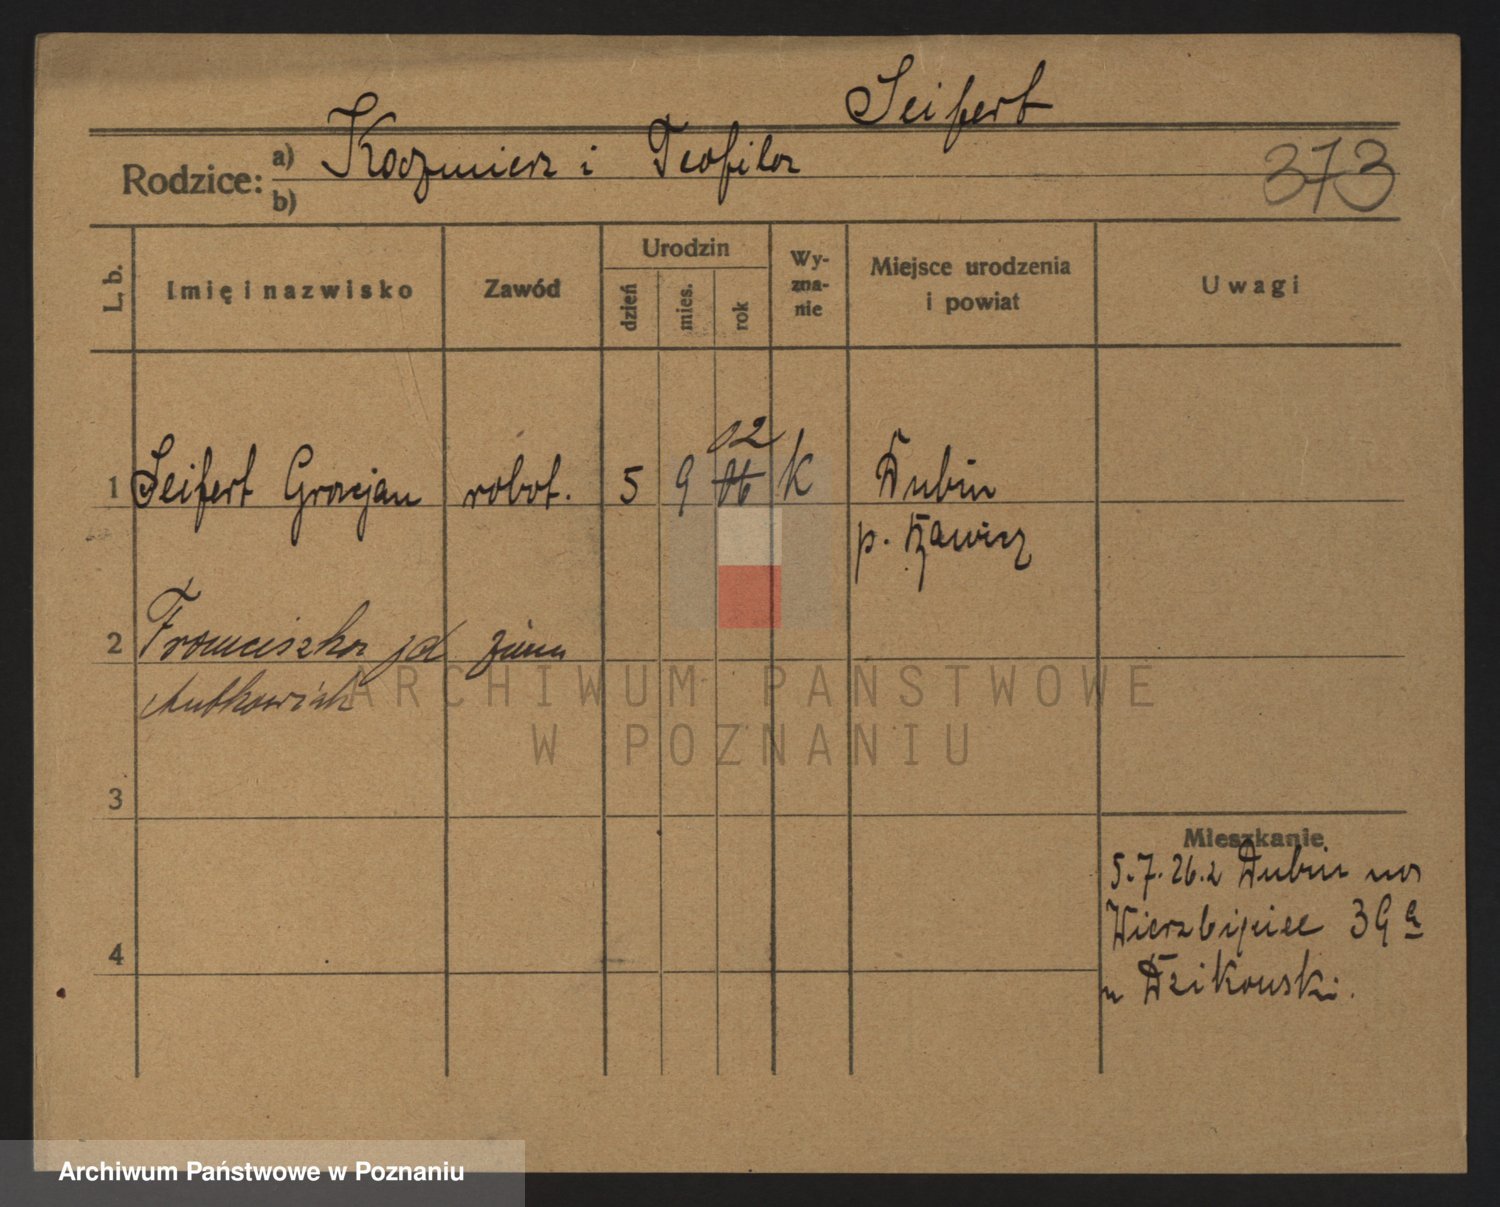 Seifert
Rodzice: a) Kazmierz i Teofila
b)
373
L. b.
Imię i nazwisko
Zawód
Urodzin
dzień
mies.
rok
Wy-
zna-
nie
Miejsce urodzenia
i powiat
Uwagi
02
1 Seifert Gracjan robot. 5 9 06 K Dubin
p. Rawicz
2 Franciszka zd żona
3
4
Mieszkanie
5.7.26. z Dubin na
Wierzbięcice 39 a
u Dzikowski.
ARCHIWUM PAŃSTWOWE
W POZNANIU
Archiwum Państwowe w Poznaniu